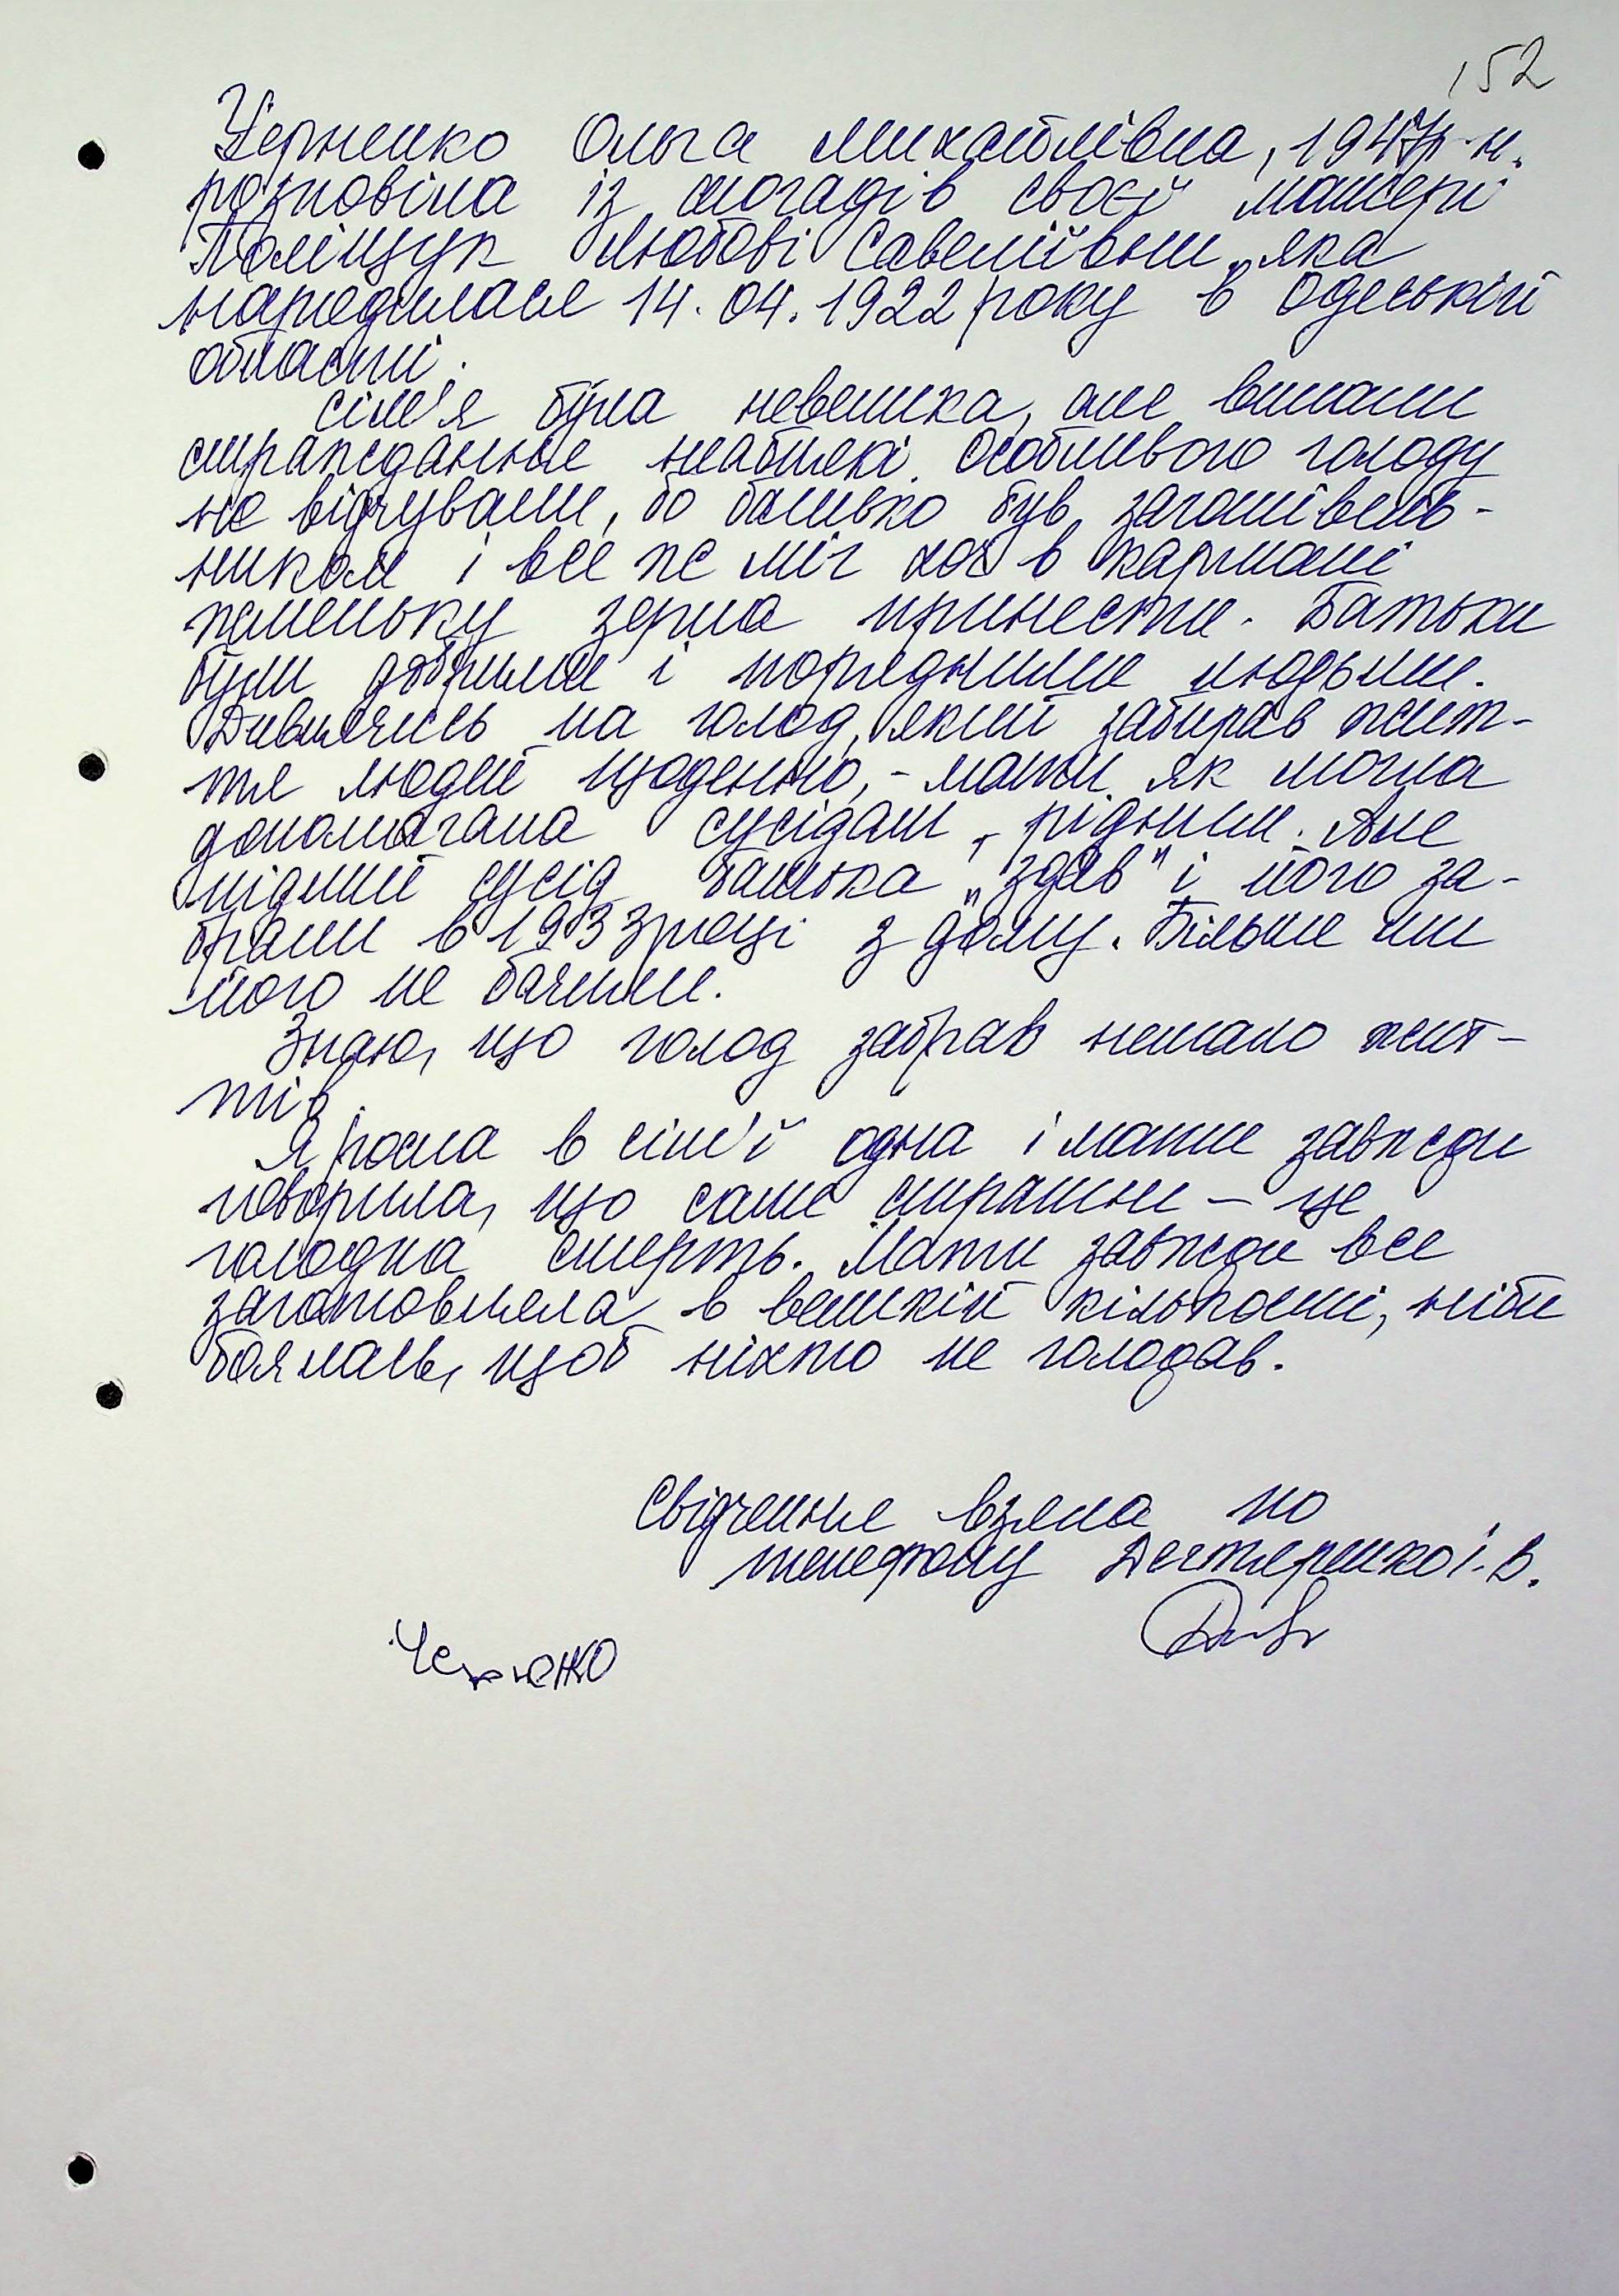 152
Черненко Ольга Михайлівна, 1947 р.н.
розповіла із спогадів своєї матері
Поліщук Любові Савеліївни, яка
народилася 14.04.1922 року в Одеській
області.
Сім'я була невелика, але випали
страждання неабиякі. Особливого голоду
не відчували, бо батько був заготівель-
ником і все же міг хоч в кармані
жменьку зерна принести. Батьки
були добрими і порядними людьми.
Дивлячись на голод, який забирав жит-
тя людей щоденно, - мати як могла
допомагала сусідам, рідним. Але
підлий сусід батька „здав" і його за-
брали в 1933 році з дому. Більше ми
його не бачили.
Знаю, що голод забрав немало жит-
тів.
Я росла в сім'ї одна і мати завжди
говорила, що саме страшне – це
голодна смерть. Мати завжди все
заготовляла в великій кількості, ніби
боялась, щоб ніхто не голодав.
Свідчення взяла по
телефону Дегтяренко І.В.
Черненко